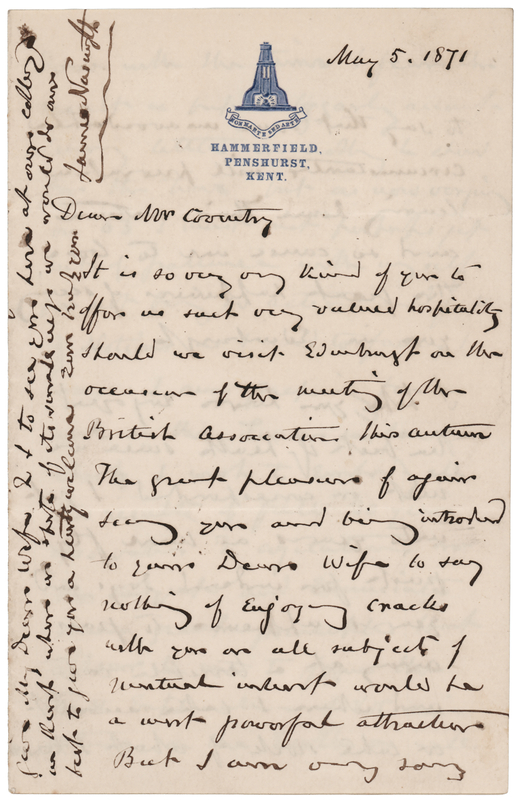 May 5. 1871
NON ARTE SED MARTE
HAMMERFIELD,
PENSHURST,
KENT.
Dear Mr Coventry
It is so very very kind of you to
offer us such very valued hospitality
should we visit Edinburgh on the
occasion of the meeting of the
British Association this autumn
The great pleasure of again
seeing you and being introduced
to your Dear Wife to say
nothing of Enjoying cracks
with you on all subjects of
mutual interest would be
a most powerful attraction
But I am very sorry
My Dear Wife & I to see you here at our
in spite of its smallness we would do our
best to give you a hearty welcome
James Nasmyth